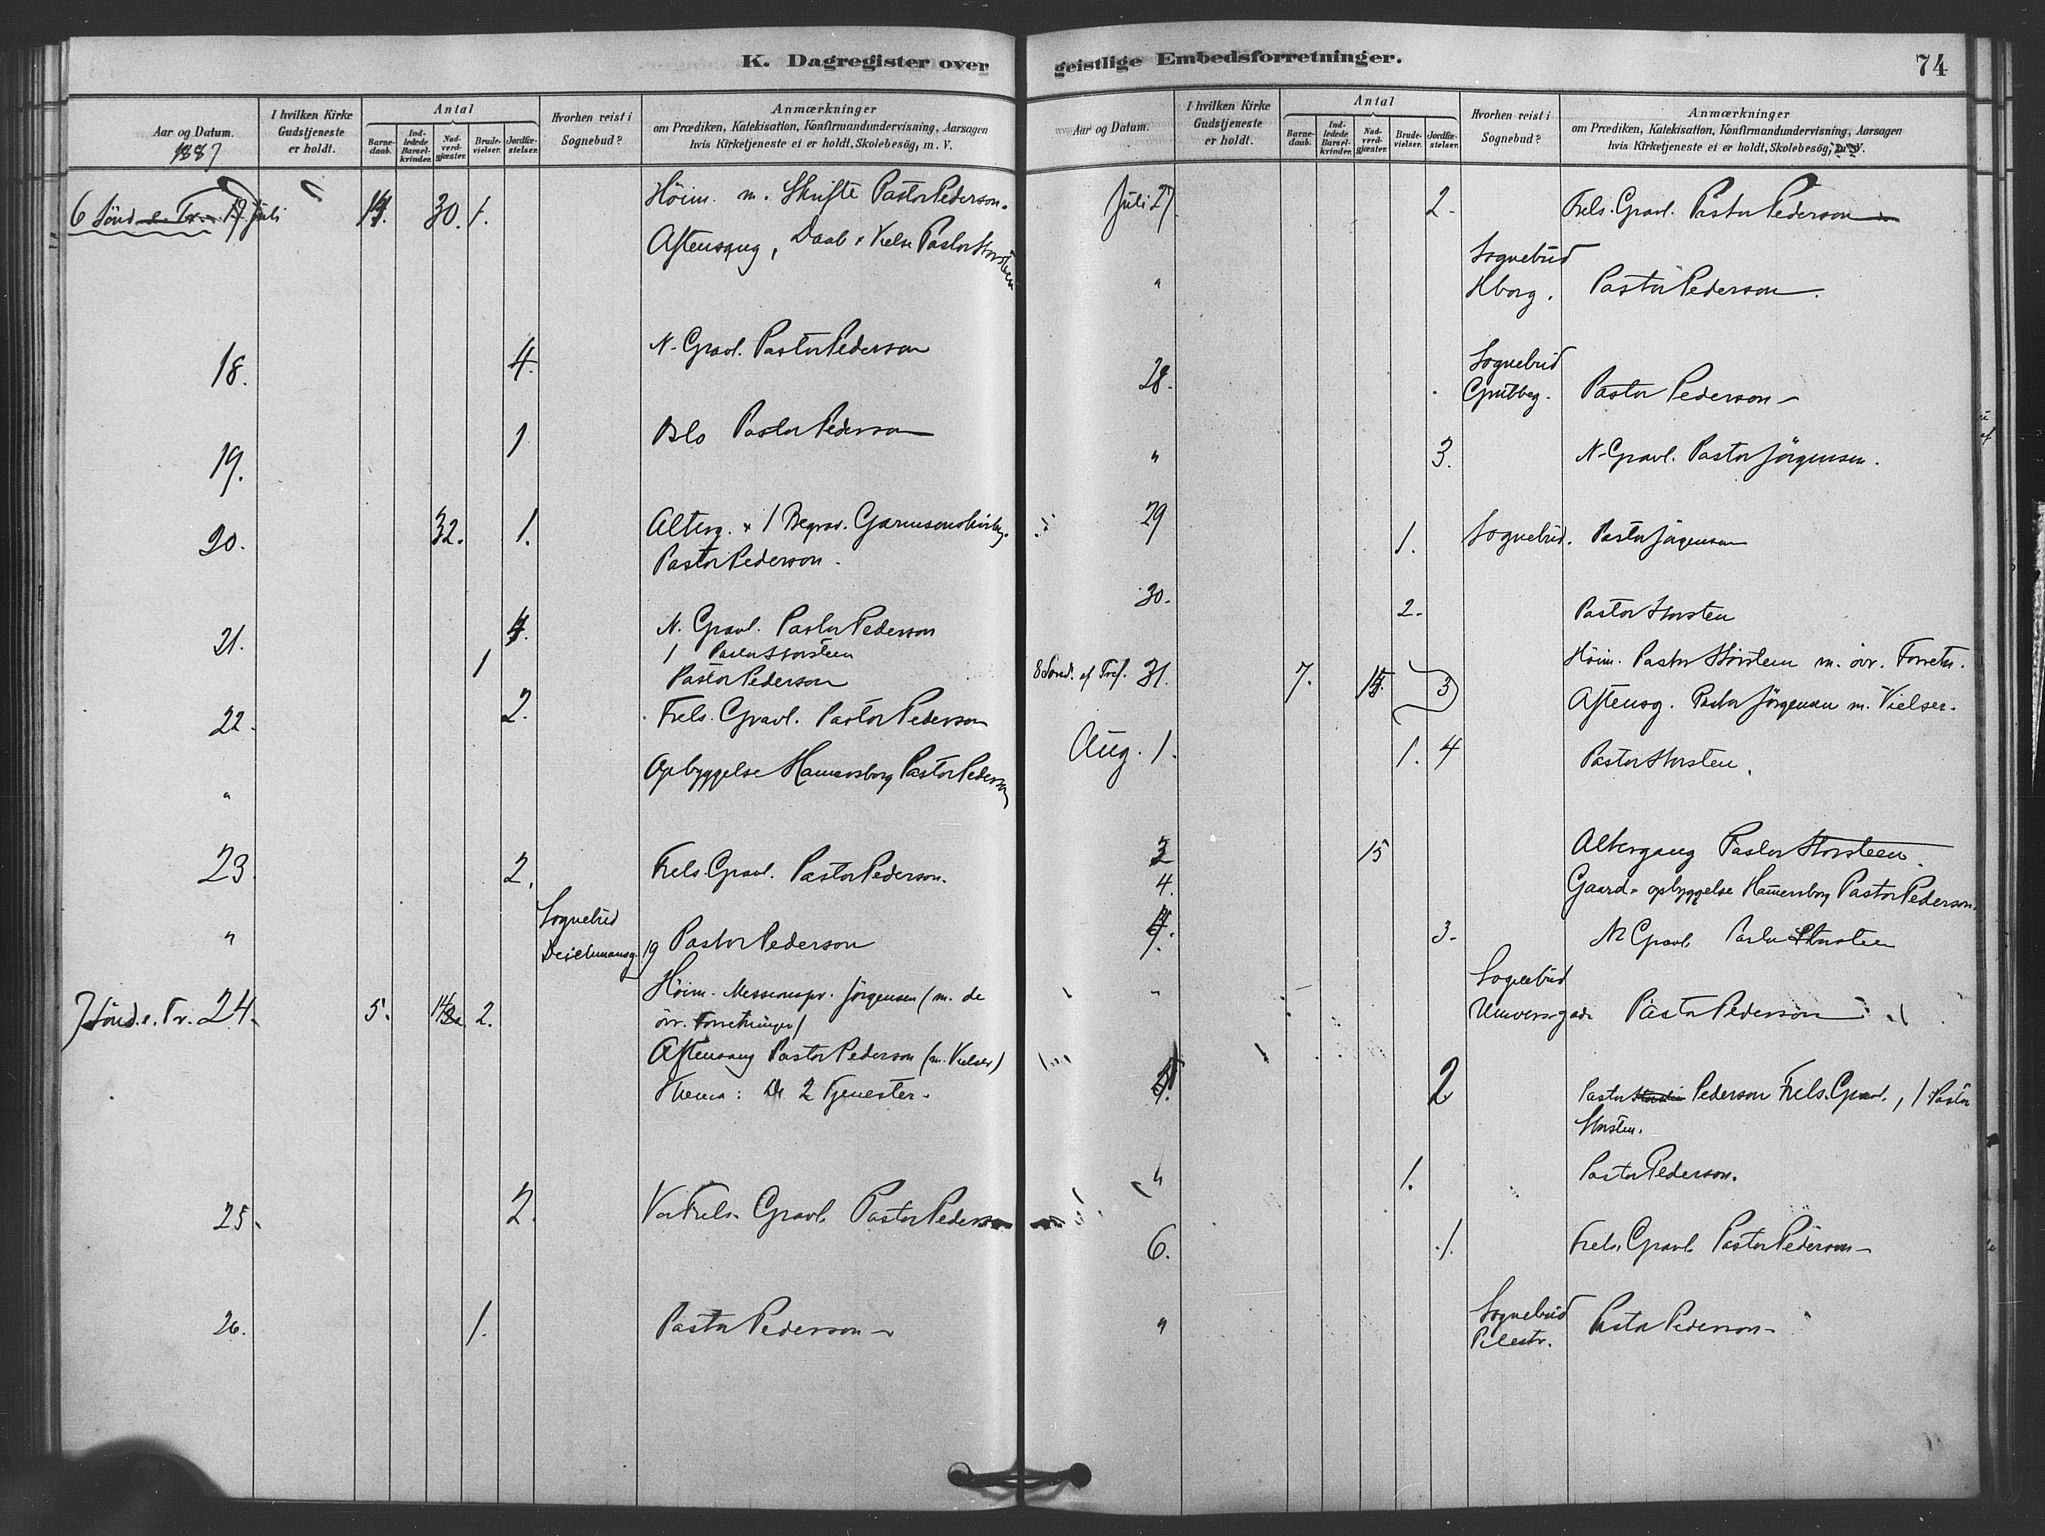 K. Dagregister over
Aar og Datum.
1887
I hvilken Kirke
Gudstjeneste
er holdt.
Antal
Barne-
daab.
Ind-
ledede
Barsel-
kvinder.
Nad-
verd-
gjæster.
Brude-
vielser.
Jordfæ-
stelser.
Hvorhen reist i
Sognebud?
Anmærkninger
om Prædiken, Katekisation, Konfirmandundervisning, Aarsagen
hvis Kirketjeneste ei er holdt, Skolebesøg, m. V.
6 Sönd. e. Tr. 17 Juli 30. 1. Höim. m. Skrifte Pastor Pederson.
Aftensang, Daab & Vielse Pastor Storsteen
18. 4. N. Gravl. Pastor Pederson
19. 1 Oslo Pastor Pederson
20. 32. 1. Alterg. & 1 Begrav. Garnisonskirkeg.
Pastor Pederson.
21. 4. N. Gravl. Pastor Pederson
1 Pastor Storsteen
1 Pastor Pederson
22. 2. Frels. Gravl. Pastor Pederson
" Opbyggelse Hamersborg Pastor Pederson
23. 2. Frels. Gravl. Pastor Pederson.
" Sognebud
Deichmansg. 19 Pastor Pederson
7 Sönd. e. Tr. 24. 5. 2. Höim. Missionspr. Jörgensen (m. de
övr. Forretninger)
Aftensang Pastor Pederson (m. Vielser)
Thema: De 2 Tjenester.
25. 2. Vor Frels. Gravl. Pastor Pederson
26. 1. Pastor Pederson
geistlige Embedsforretninger.
74
Aar og Datum.
I hvilken Kirke
Gudstjeneste
er holdt.
Antal
Barne-
daab.
Ind-
ledede
Barsel-
kvinder.
Nad-
verd-
gjæster.
Brude-
vielser.
Jordfæ-
stelser.
Hvorhen reist i
Sognebud?
Anmærkninger
om Prædiken, Katekisation, Konfirmandundervisning, Aarsagen
hvis Kirketjeneste ei er holdt, Skolebesøg, m. V.
Juli 27. 2. Frels. Gravl. Pastor Pederson
" Sognebud
Hborg. Pastor Pederson.
28. Sognebud
Grubbeg. Pastor Pederson
" 3. N. Gravl. Pastor Jörgensen.
29 1. Sognebud. Pastor Jörgensen
30. 2. Pastor Storsten
8 Sönd. ef Tref. 31. 7. 3 Höim. Pastor Storsteen m. övr. Forretn.
Aftensg. Pastor Jörgensen m. Vielser.
Aug. 1. 1. 4 Pastor Storsten.
3 15 Altergang Pastor Storsteen.
4. Gaards-opbyggelse Hamersborg Pastor Pederson.
4. 3. N Gravl. Pastor Storsteen
" Sognebud
Universgade Pastor Pederson
5. 2 Pastor Pederson Frels. Gravl., 1 Pastor
Storsten.
" 1. Pastor Pederson.
6. 1. Frels. Gravl. Pastor Pederson
" Sognebud
Pilestr. Pastor Pederson